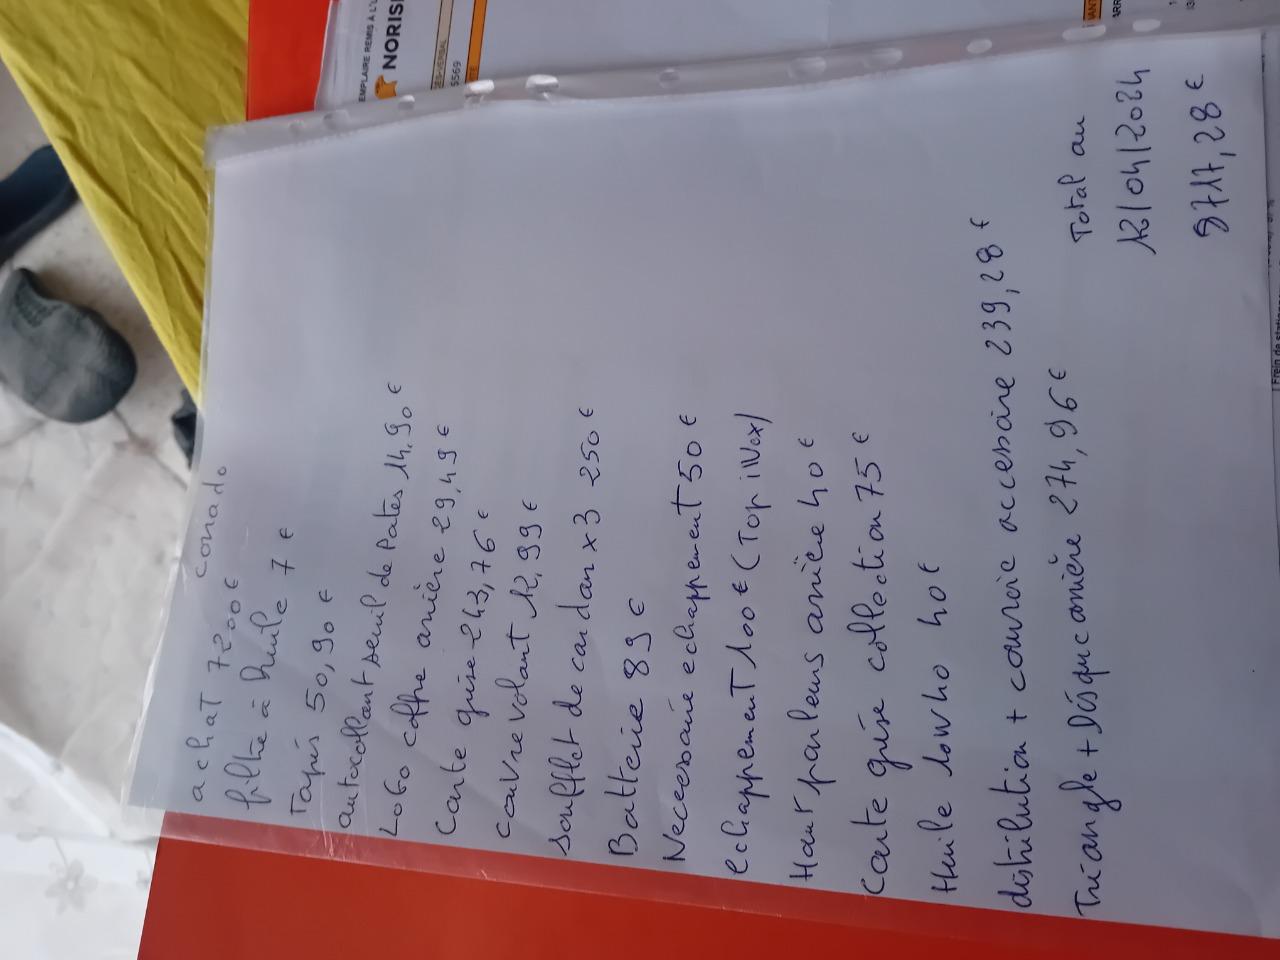 achat 7200€ corrado
filtre à huile 7€
Tapis 50,90€
autocollant seuil de Portes 14,90€
LoGo coffre arrière 29,49€
Carte grise 243,76€
couvre volant 12,99€
soufflet de cardan x3 250€
Batterie 89€
Necessaire echappement 50€
echappement 100€ (Top iNox)
Haut parleurs arrière 40€
Carte grise collection 75€
Huile 10W40 40€
distribution + courroie accessoire 239,28€
Triangle + Disque arrière 274,96€
Total au
12/04/2024
8717,28€
EMPLAIRE REMIS À L'U
NORIS
5569